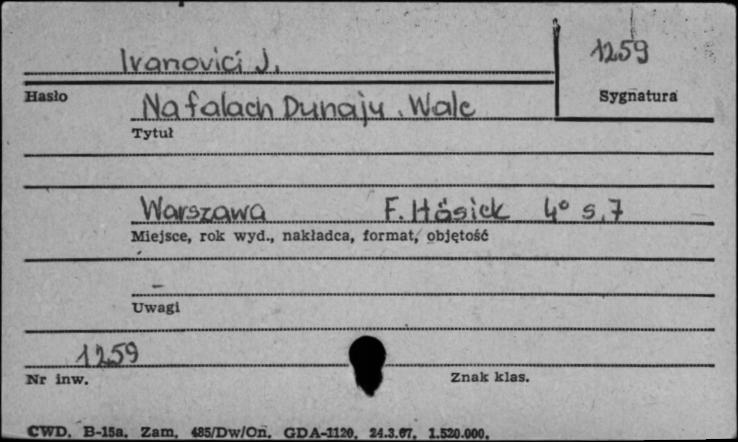 Ivanovici J.
1259
Hasło
Sygnatura
Na falach Dunaju. Walc
Tytuł
Warszawa F. Hösick 4° s. 7
Miejsce, rok wyd., nakładca, format, objętość
Uwagi
1259
Nr inw.
Znak klas.
CWD. B-15a. Zam. 485/Dw/On. GDA-1120. 24.3.67. 1.520.000.